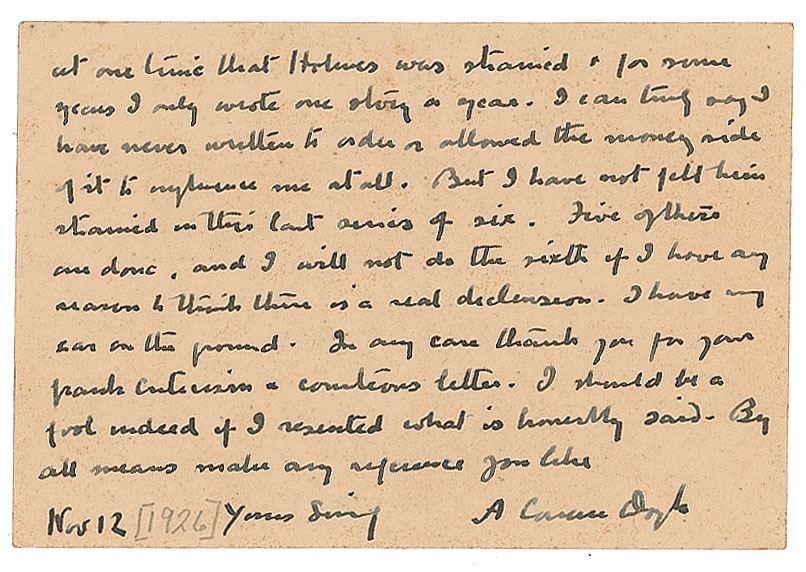 at one time that Holmes was strained & for some
years I only wrote one story a year. I can truly say I
have never written to order or allowed the money side
of it to influence me at all. But I have not felt him
strained in this last series of six. Five of them
are done, and I will not do the sixth if I have any
reason to think there is a real declension. I have my
ear on the ground. In any case thank you for your
frank criticism & courteous letter. I should be a
fool indeed if I resented what is honestly said. By
all means make any reference you like
Nov 12 [1926] Yours A Conan Doyle